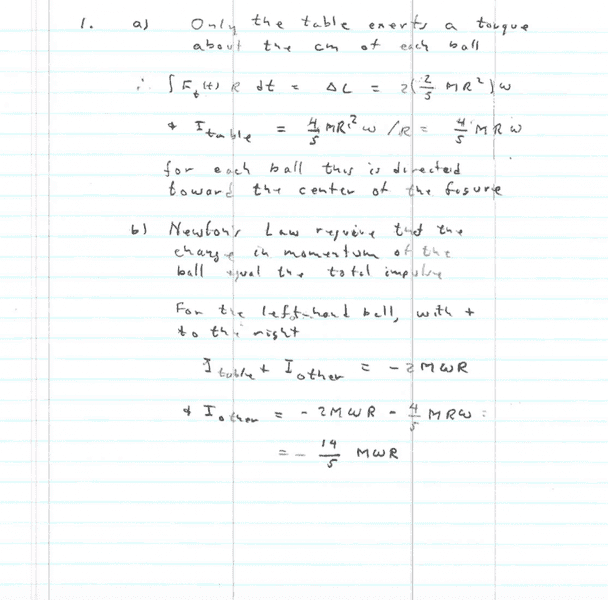 1. a) Only the table exerts a torque
about the cm of each ball
∴ ∫ F_t(t) R dt = ΔL = 2(2/5 MR²)ω
+ I_table = 4/5 MR²ω /R = 4/5 MRω
for each ball this is directed
toward the center of the figure
b) Newton's Law require that the
change in momentum of the
ball equal the total impulse
For the left-hand ball, with +
to the right
I_table + I_other = -2MωR
+ I_other = -2MωR - 4/5 MRω =
= - 14/5 MωR